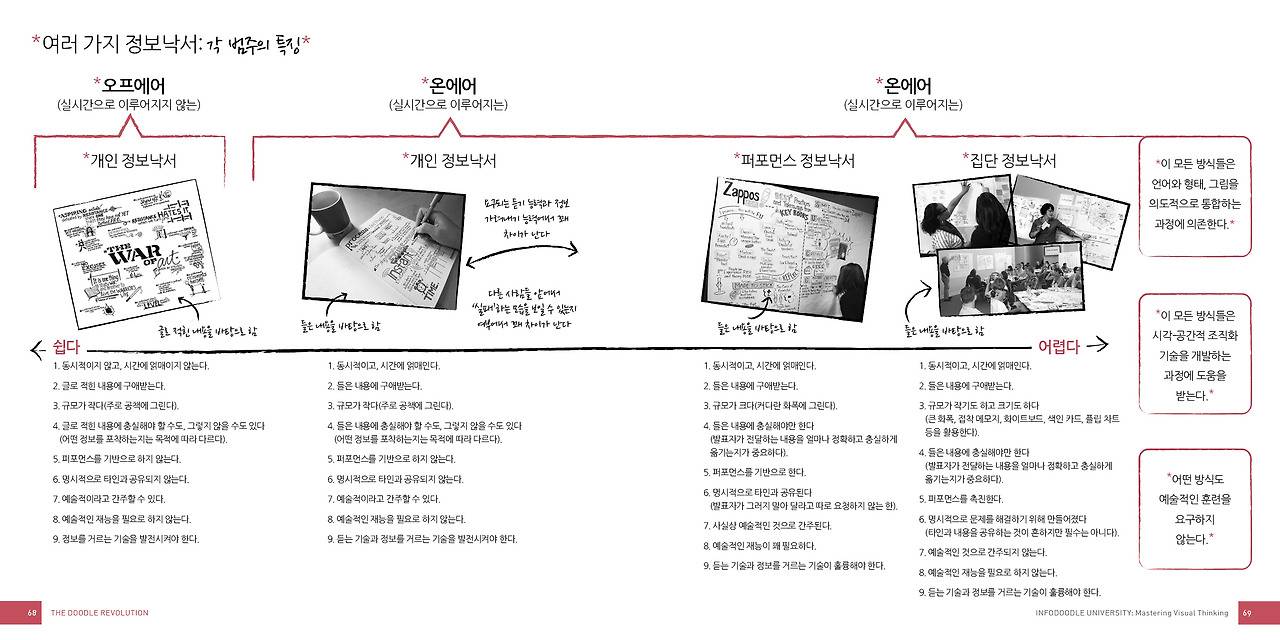 *여러 가지 정보낙서: 각 범주의 특징*
*오프에어
(실시간으로 이루어지지 않는)
*온에어
(실시간으로 이루어지는)
*온에어
(실시간으로 이루어지는)
*개인 정보낙서
THE
WAR
OF art
글로 적힌 내용을 바탕으로 함
*개인 정보낙서
들은 내용을 바탕으로 함
요구되는 듣기 능력과 정보
가려내기 능력에서 꽤
차이가 난다
다른 사람들 앞에서
'실패'하는 모습을 보일 수 있는지
여부에서 꽤 차이가 난다
*퍼포먼스 정보낙서
Zappos
KEY BOOKS
들은 내용을 바탕으로 함
*집단 정보낙서
들은 내용을 바탕으로 함
쉽다
어렵다
1. 동시적이지 않고, 시간에 얽매이지 않는다.
2. 글로 적힌 내용에 구애받는다.
3. 규모가 작다(주로 공책에 그린다).
4. 글로 적힌 내용에 충실해야 할 수도, 그렇지 않을 수도 있다
(어떤 정보를 포착하는지는 목적에 따라 다르다).
5. 퍼포먼스를 기반으로 하지 않는다.
6. 명시적으로 타인과 공유되지 않는다.
7. 예술적이라고 간주할 수 있다.
8. 예술적인 재능을 필요로 하지 않는다.
9. 정보를 거르는 기술을 발전시켜야 한다.
1. 동시적이고, 시간에 얽매인다.
2. 들은 내용에 구애받는다.
3. 규모가 작다(주로 공책에 그린다).
4. 들은 내용에 충실해야 할 수도, 그렇지 않을 수도 있다
(어떤 정보를 포착하는지는 목적에 따라 다르다).
5. 퍼포먼스를 기반으로 하지 않는다.
6. 명시적으로 타인과 공유되지 않는다.
7. 예술적이라고 간주할 수 있다.
8. 예술적인 재능을 필요로 하지 않는다.
9. 듣는 기술과 정보를 거르는 기술을 발전시켜야 한다.
1. 동시적이고, 시간에 얽매인다.
2. 들은 내용에 구애받는다.
3. 규모가 크다(커다란 화폭에 그린다).
4. 들은 내용에 충실해야만 한다
(발표자가 전달하는 내용을 얼마나 정확하고 충실하게
옮기는지가 중요하다).
5. 퍼포먼스를 기반으로 한다.
6. 명시적으로 타인과 공유된다
(발표자가 그러지 말아 달라고 따로 요청하지 않는 한).
7. 사실상 예술적인 것으로 간주된다.
8. 예술적인 재능이 꽤 필요하다.
9. 듣는 기술과 정보를 거르는 기술이 훌륭해야 한다.
1. 동시적이고, 시간에 얽매인다.
2. 들은 내용에 구애받는다.
3. 규모가 작기도 하고 크기도 하다
(큰 화폭, 접착 메모지, 화이트보드, 색인 카드, 플립 차트
등을 활용한다).
4. 들은 내용에 충실해야만 한다
(발표자가 전달하는 내용을 얼마나 정확하고 충실하게
옮기는지가 중요하다).
5. 퍼포먼스를 촉진한다.
6. 명시적으로 문제를 해결하기 위해 만들어졌다
(타인과 내용을 공유하는 것이 흔하지만 필수는 아니다).
7. 예술적인 것으로 간주되지 않는다.
8. 예술적인 재능을 필요로 하지 않는다.
9. 듣는 기술과 정보를 거르는 기술이 훌륭해야 한다.
*이 모든 방식들은
언어와 형태, 그림을
의도적으로 통합하는
과정에 의존한다.*
*이 모든 방식들은
시각-공간적 조직화
기술을 개발하는
과정에 도움을
받는다.*
*어떤 방식도
예술적인 훈련을
요구하지
않는다.*
68 THE DOODLE REVOLUTION
INFODOODLE UNIVERSITY: Mastering Visual Thinking 69